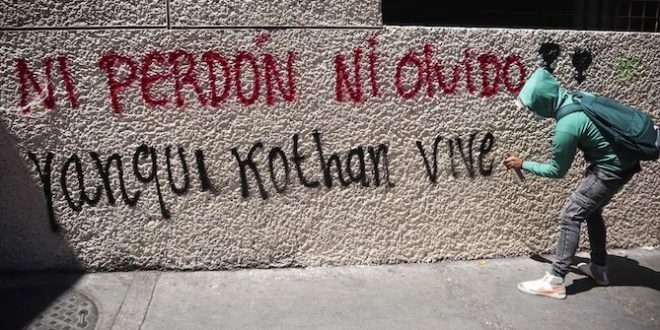 NI PERDÓN NI OLVIDO!!
Yanqui Kothan vive